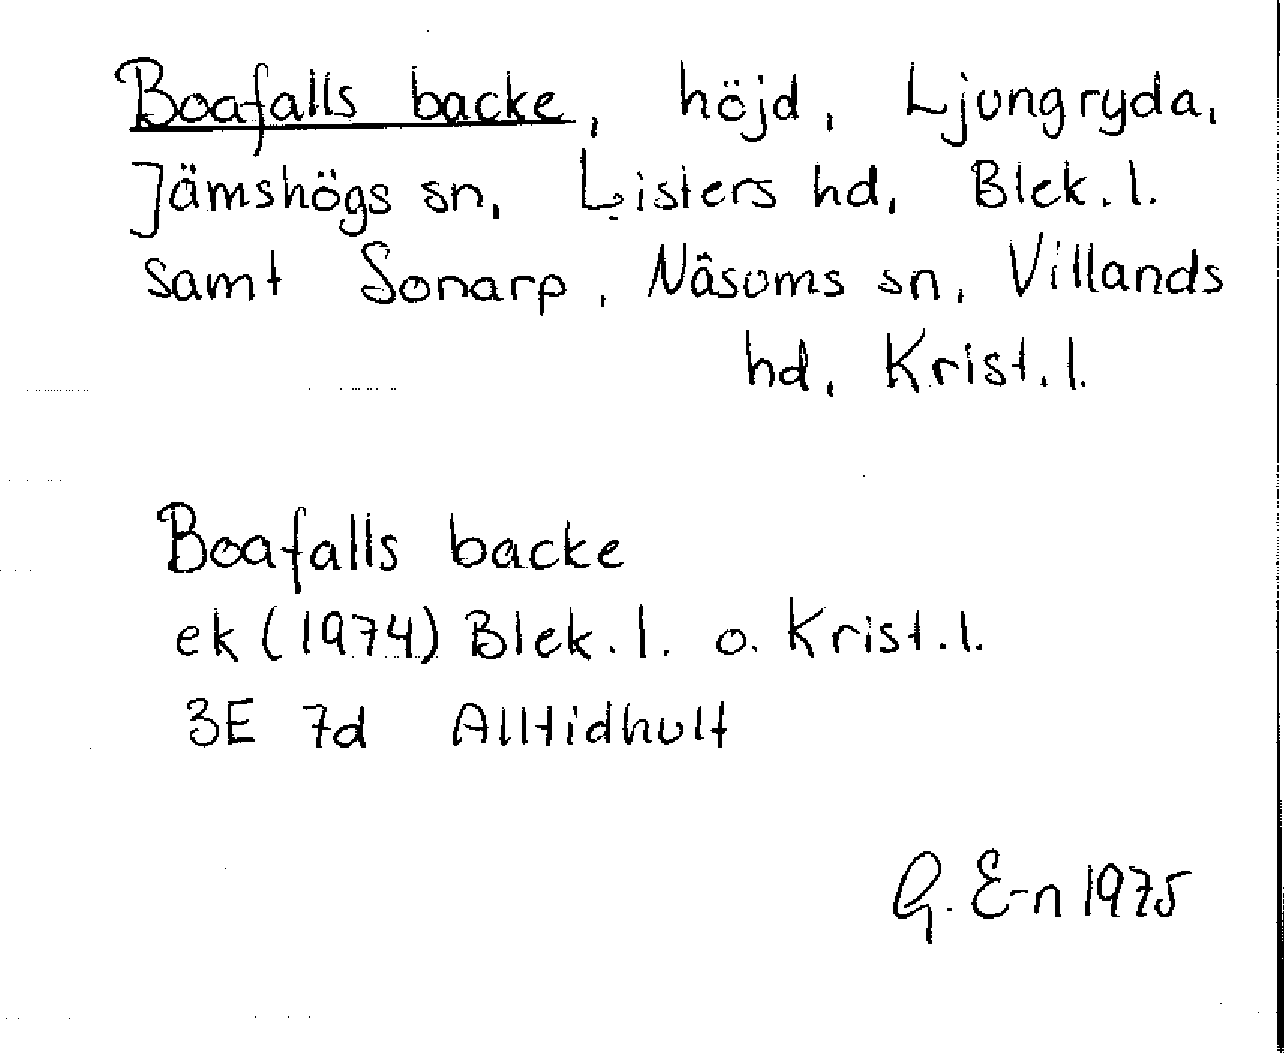 Boafalls backe, höjd, Ljungryda,
Jämshögs sn, Listers hd, Blek. l.
samt Sonarp, Näsums sn, Villands
hd, Krist. l.
Boafalls backe
ek (1974) Blek. l. o. Krist. l.
3E 7d Alltidhult
G. E-n 1975